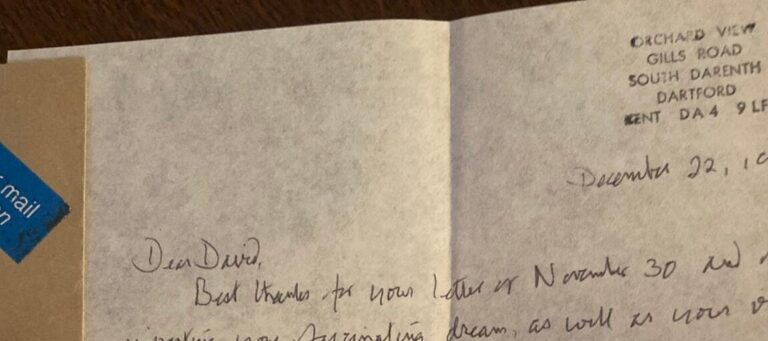 ORCHARD VIEW
GILLS ROAD
SOUTH DARENTH
DARTFORD
KENT DA4 9LF
mail
December 22, 19
Dear David,
Best thanks for your letter of November 30 and
your fascinating dream, as well as your